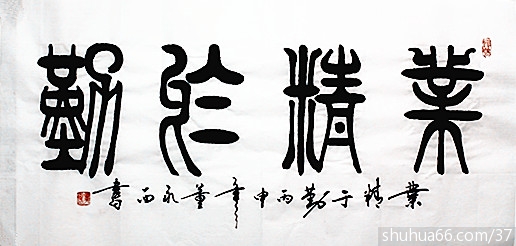 業精於勤
業精于勤丙申年董永西書
shuhua66.com/37